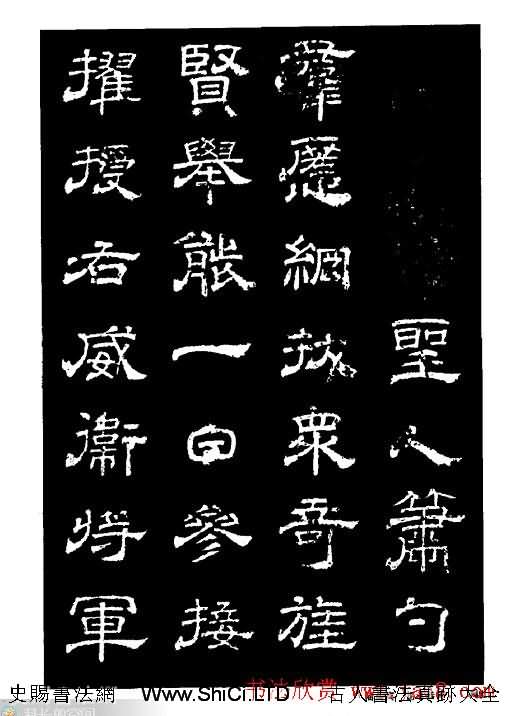 聖人簫勺
羣慝網拔衆奇旌
賢舉能一日參接
擢授右威衛將軍
史賜書法網 www.ShiCi.LTD 古人書法真跡大全
书法欣赏